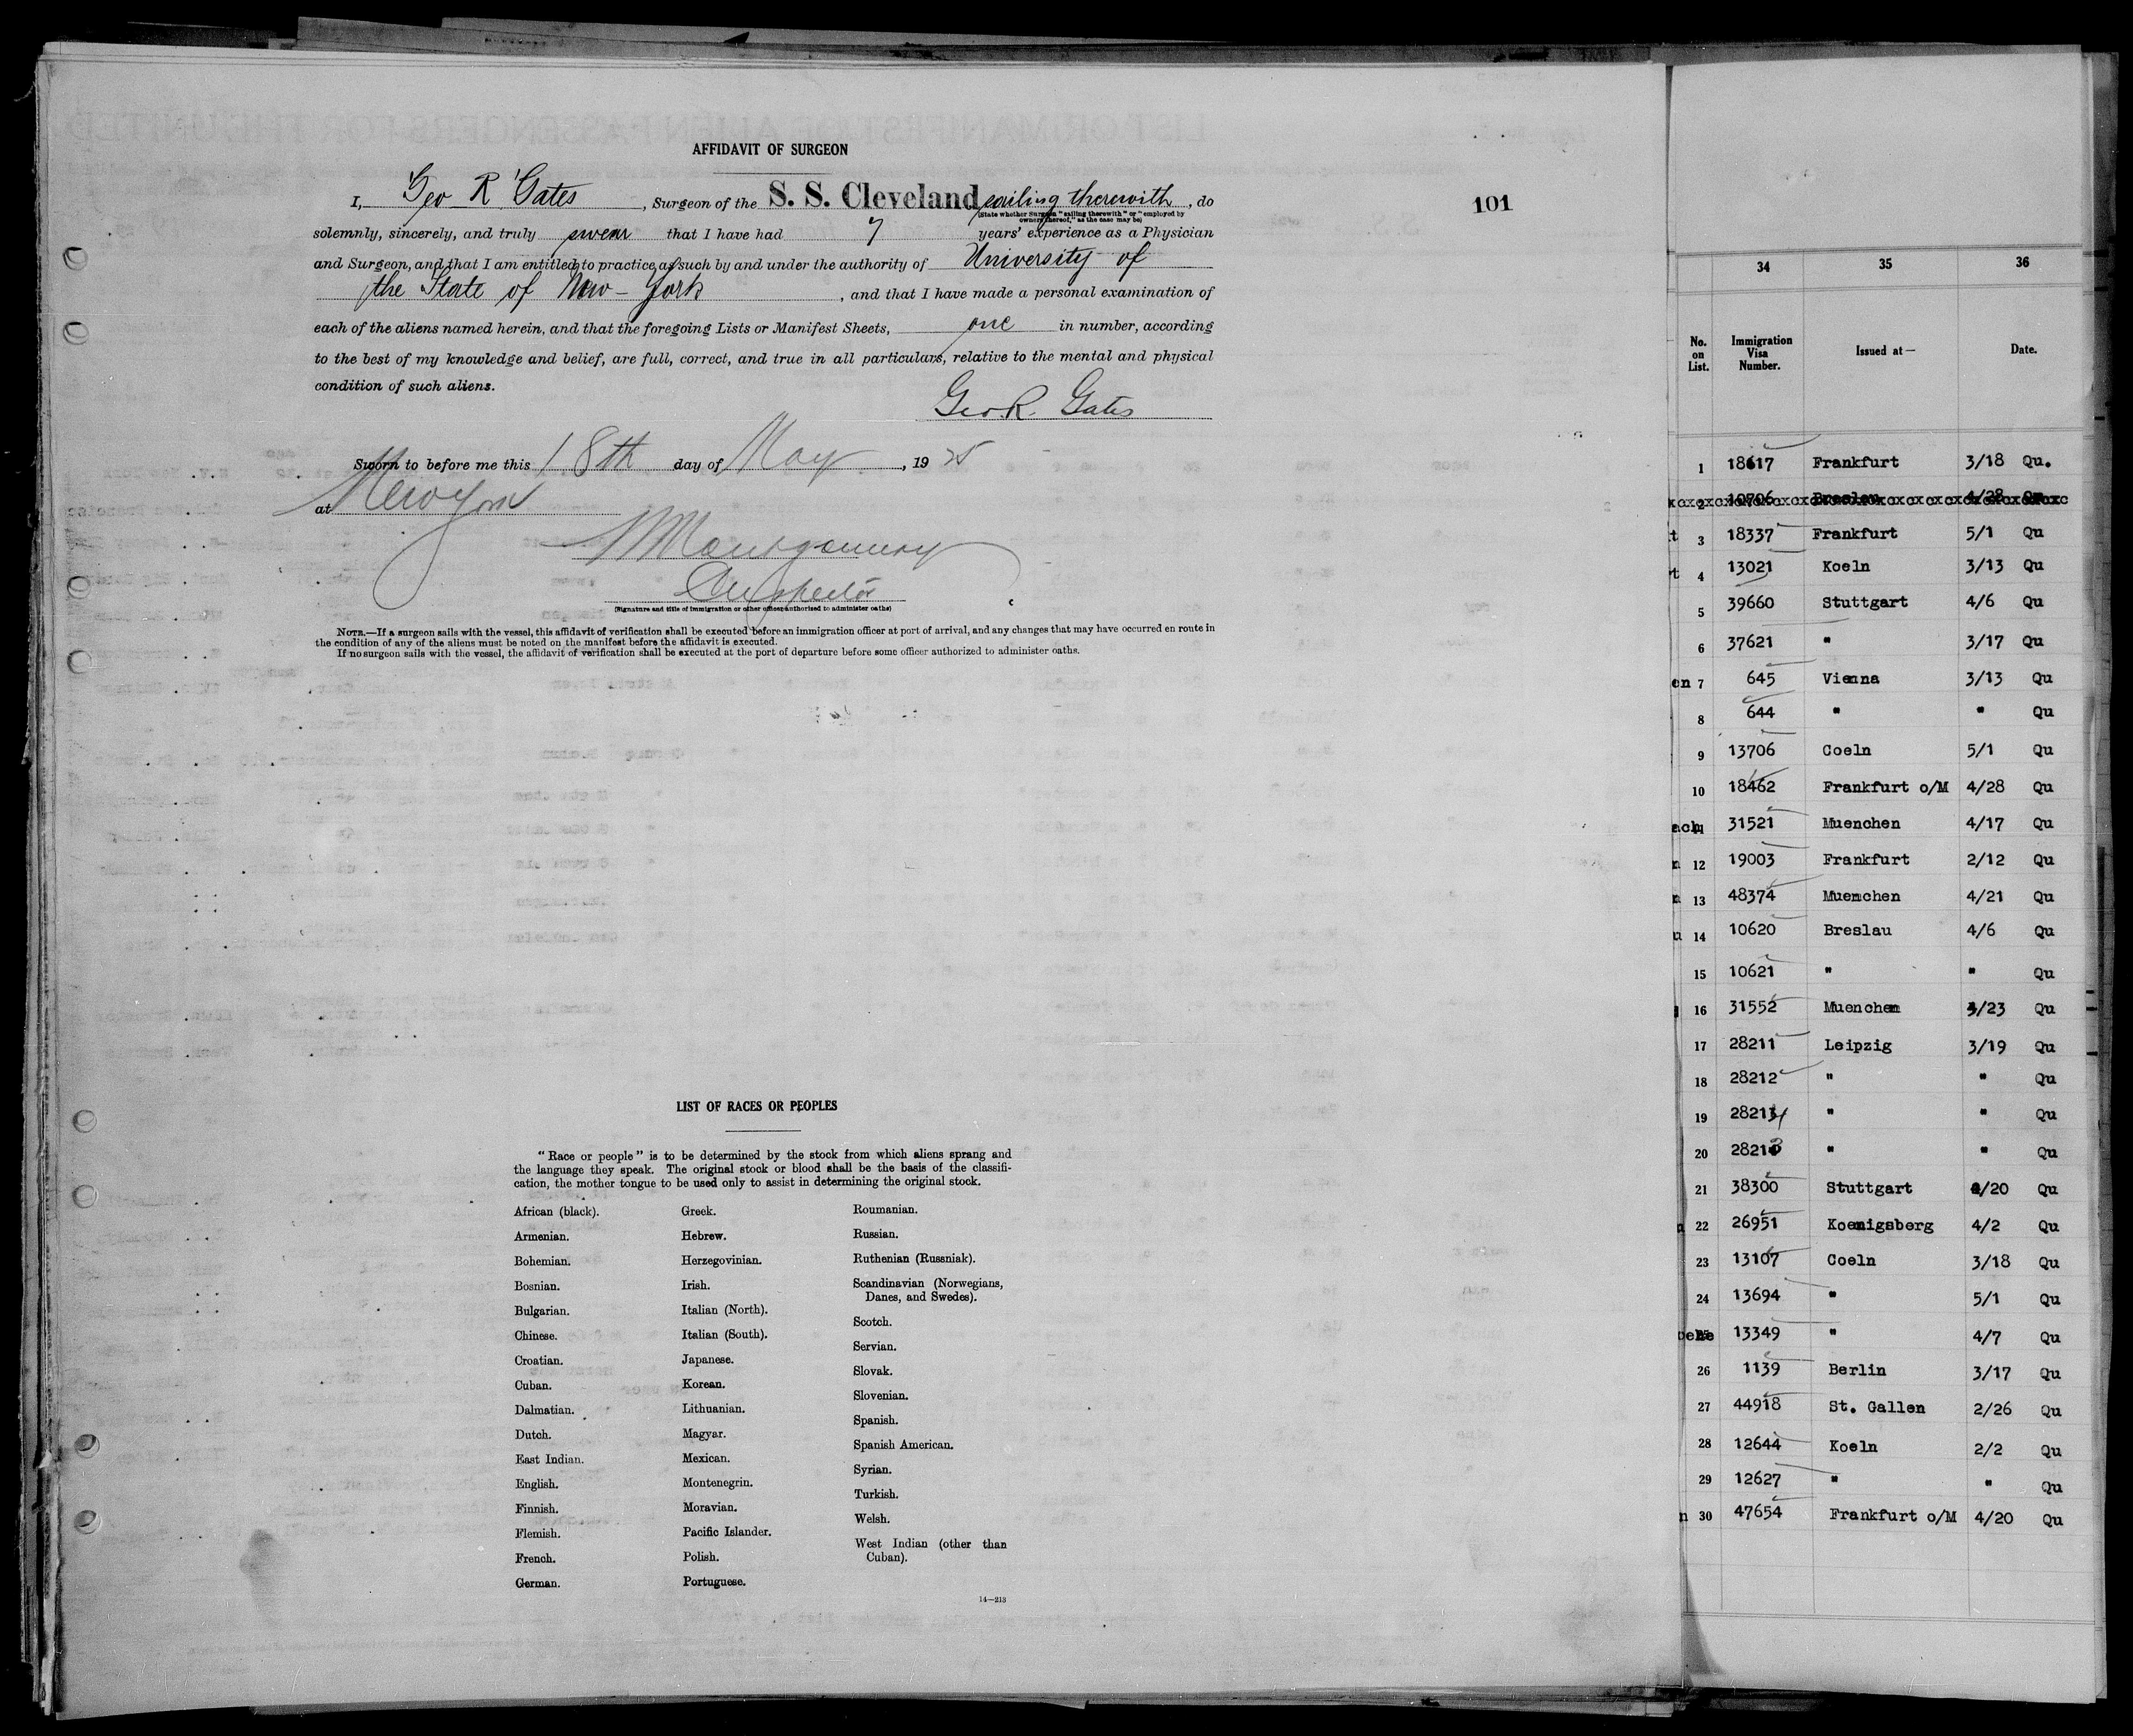 AFFIDAVIT OF SURGEON
I, Geo R Gates, Surgeon of the S. S. Cleveland sailing therewith, do
(State whether Surgeon "sailing therewith" or "employed by
owners thereof," as the case may be)
101
solemnly, sincerely, and truly swear that I have had 7 years' experience as a Physician
and Surgeon, and that I am entitled to practice as such by and under the authority of University of
the State of New-York, and that I have made a personal examination of
each of the aliens named herein, and that the foregoing Lists or Manifest Sheets, one in number, according
to the best of my knowledge and belief, are full, correct, and true in all particulars, relative to the mental and physical
condition of such aliens.
Geo. R. Gates
Sworn to before me this 18th day of May, 1925
at New York
Montgomery
Inspector
(Signature and title of immigration or other officer authorized to administer oaths)
NOTE.—If a surgeon sails with the vessel, this affidavit of verification shall be executed before an immigration officer at port of arrival, and any changes that may have occurred en route in
the condition of any of the aliens must be noted on the manifest before the affidavit is executed.
If no surgeon sails with the vessel, the affidavit of verification shall be executed at the port of departure before some officer authorized to administer oaths.
LIST OF RACES OR PEOPLES
"Race or people" is to be determined by the stock from which aliens sprang and
the language they speak. The original stock or blood shall be the basis of the classifi-
cation, the mother tongue to be used only to assist in determining the original stock.
African (black).
Armenian.
Bohemian.
Bosnian.
Bulgarian.
Chinese.
Croatian.
Cuban.
Dalmatian.
Dutch.
East Indian.
English.
Finnish.
Flemish.
French.
German.
Greek.
Hebrew.
Herzegovinian.
Irish.
Italian (North).
Italian (South).
Japanese.
Korean.
Lithuanian.
Magyar.
Mexican.
Montenegrin.
Moravian.
Pacific Islander.
Polish.
Portuguese.
Roumanian.
Russian.
Ruthenian (Russniak).
Scandinavian (Norwegians,
Danes, and Swedes).
Scotch.
Servian.
Slovak.
Slovenian.
Spanish.
Spanish American.
Syrian.
Turkish.
Welsh.
West Indian (other than
Cuban).
14—213
34 35 36
No. on List. Immigration Visa Number. Issued at— Date.
1 18617 Frankfurt 3/18 Qu.
2 10706 Breslau 4/28 Qu
t 3 18337 Frankfurt 5/1 Qu
4 13021 Koeln 3/13 Qu
5 39660 Stuttgart 4/6 Qu
6 37621 " 3/17 Qu
en 7 645 Vienna 3/13 Qu
8 644 " " Qu
9 13706 Coeln 5/1 Qu
10 18462 Frankfurt o/M 4/28 Qu
ach 31521 Muenchen 4/17 Qu
n 12 19003 Frankfurt 2/12 Qu
13 48374 Muenchen 4/21 Qu
u 14 10620 Breslau 4/6 Qu
15 10621 " " Qu
16 31552 Muenchen 3/23 Qu
17 28211 Leipzig 3/19 Qu
18 28212 " " Qu
19 28214 " " Qu
20 28213 " " Qu
21 38300 Stuttgart /20 Qu
22 26951 Koenigsberg 4/2 Qu
23 13107 Coeln 3/18 Qu
24 13694 " 5/1 Qu
25 13349 " 4/7 Qu
26 1139 Berlin 3/17 Qu
27 44918 St. Gallen 2/26 Qu
28 12644 Koeln 2/2 Qu
29 12627 " " Qu
n 30 47654 Frankfurt o/M 4/20 Qu